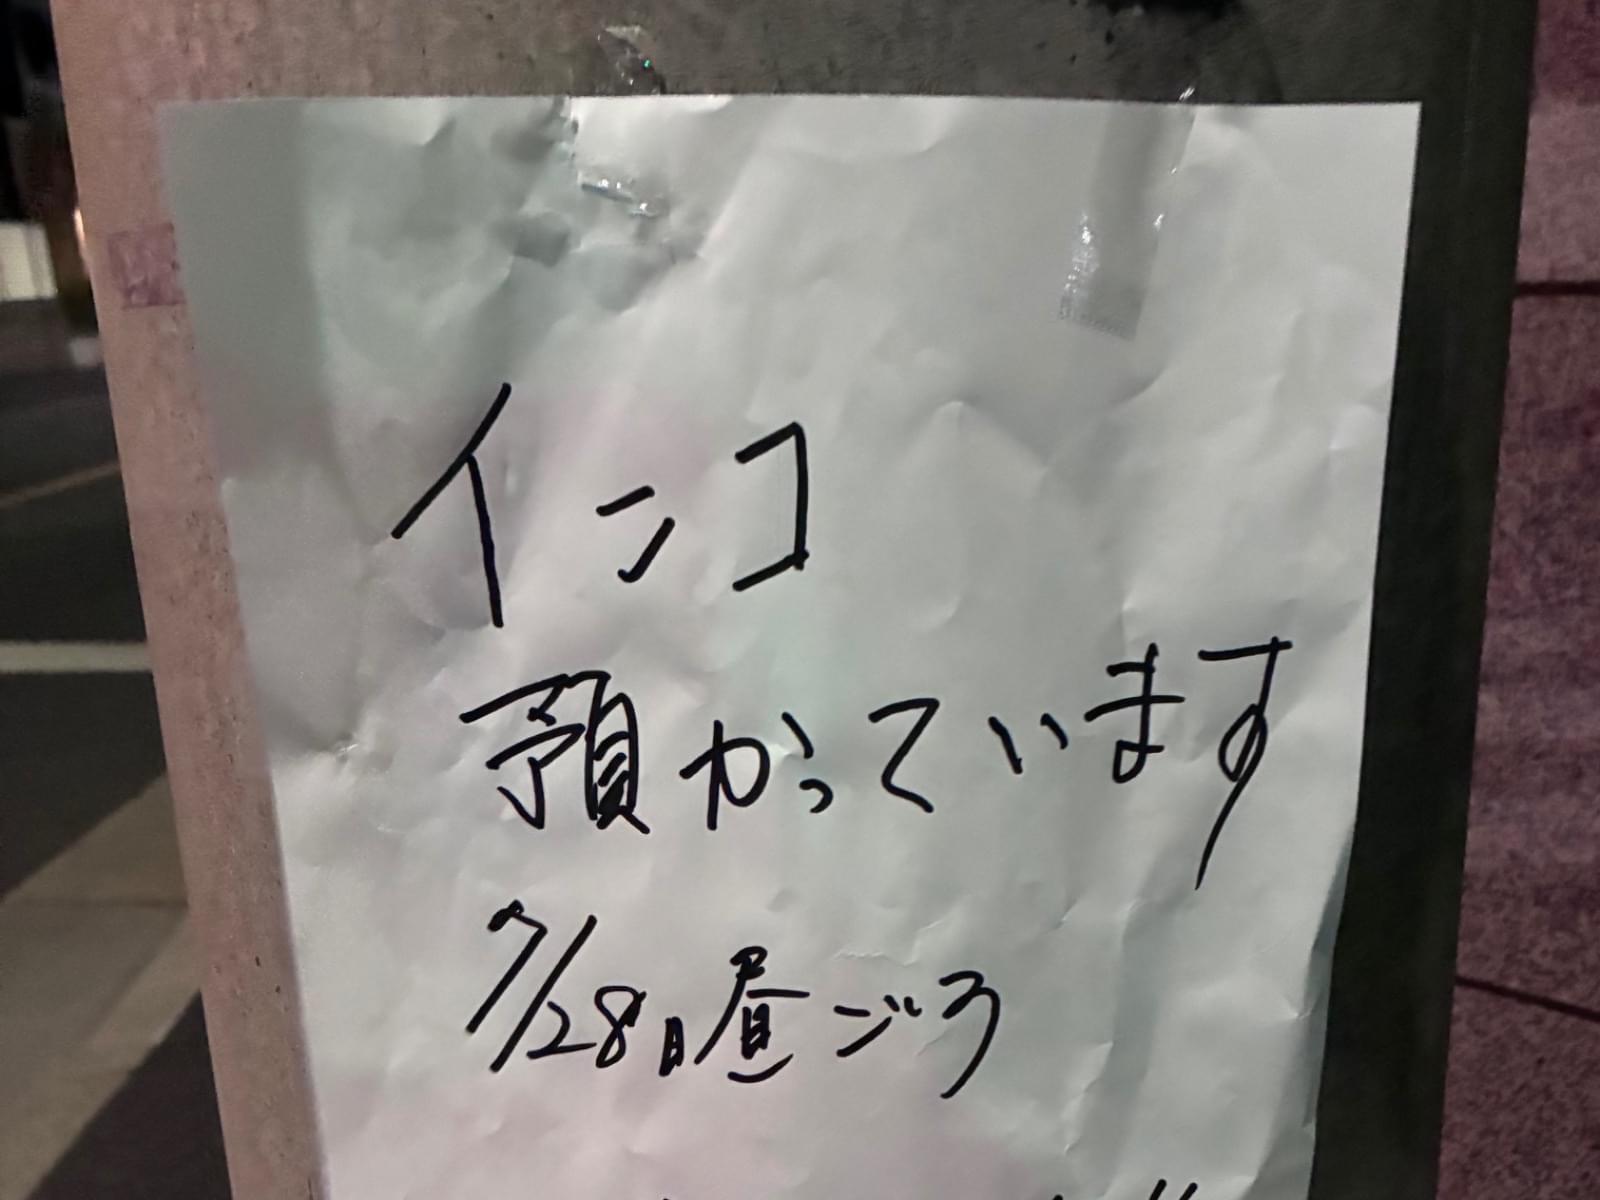 インコ
預かっています
7/28日昼ごろ